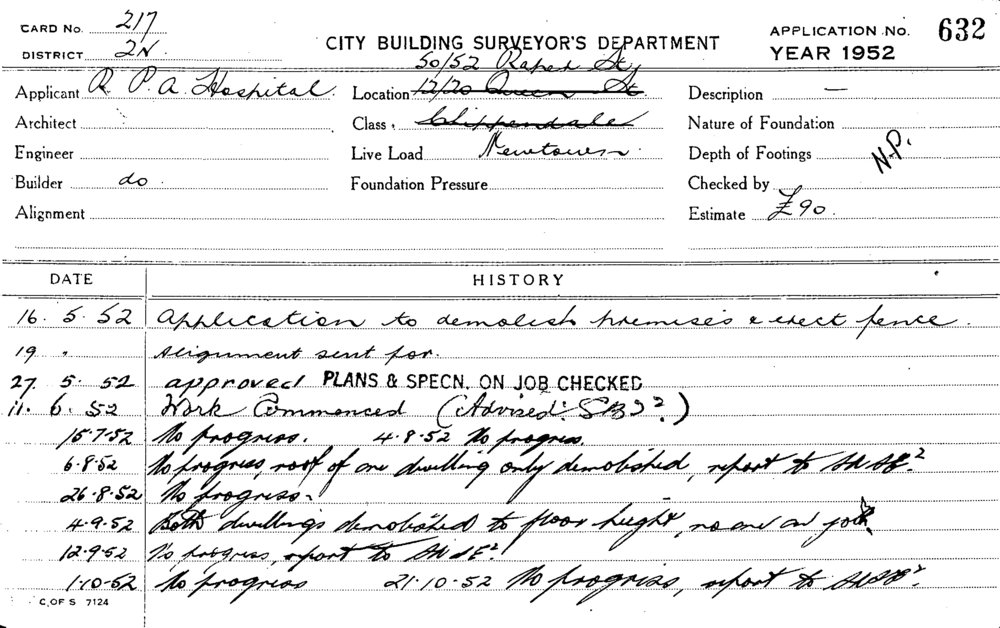 CARD No. 217
DISTRICT 2N.
CITY BUILDING SURVEYOR'S DEPARTMENT
APPLICATION No. 632
YEAR 1952
Applicant R. P. A. Hospital
Architect
Engineer
Builder do.
Alignment
50/52 Raper St,
Location 12/20 Queen St
Class. Chippendale
Live Load Newtown.
Foundation Pressure
Description —
Nature of Foundation
Depth of Footings N.P.
Checked by
Estimate £90.
DATE HISTORY
16. 5. 52 Application to demolish premises & erect fence.
19 " Alignment sent for.
27 5. 52 approved PLANS & SPECN. ON JOB CHECKED
11. 6. 52 Work Commenced (Advised: )
15.7.52 No progress. 4.8.52 No progress.
6.8.52 No progress, roof of one dwelling only demolished, report to
26.8.52 No progress.
4.9.52 Both dwellings demolished to floor height, no one on job
12.9.52 No progress, report to
1.10.52 No progress 21.10.52 No progress, report to
C. OF S 7124